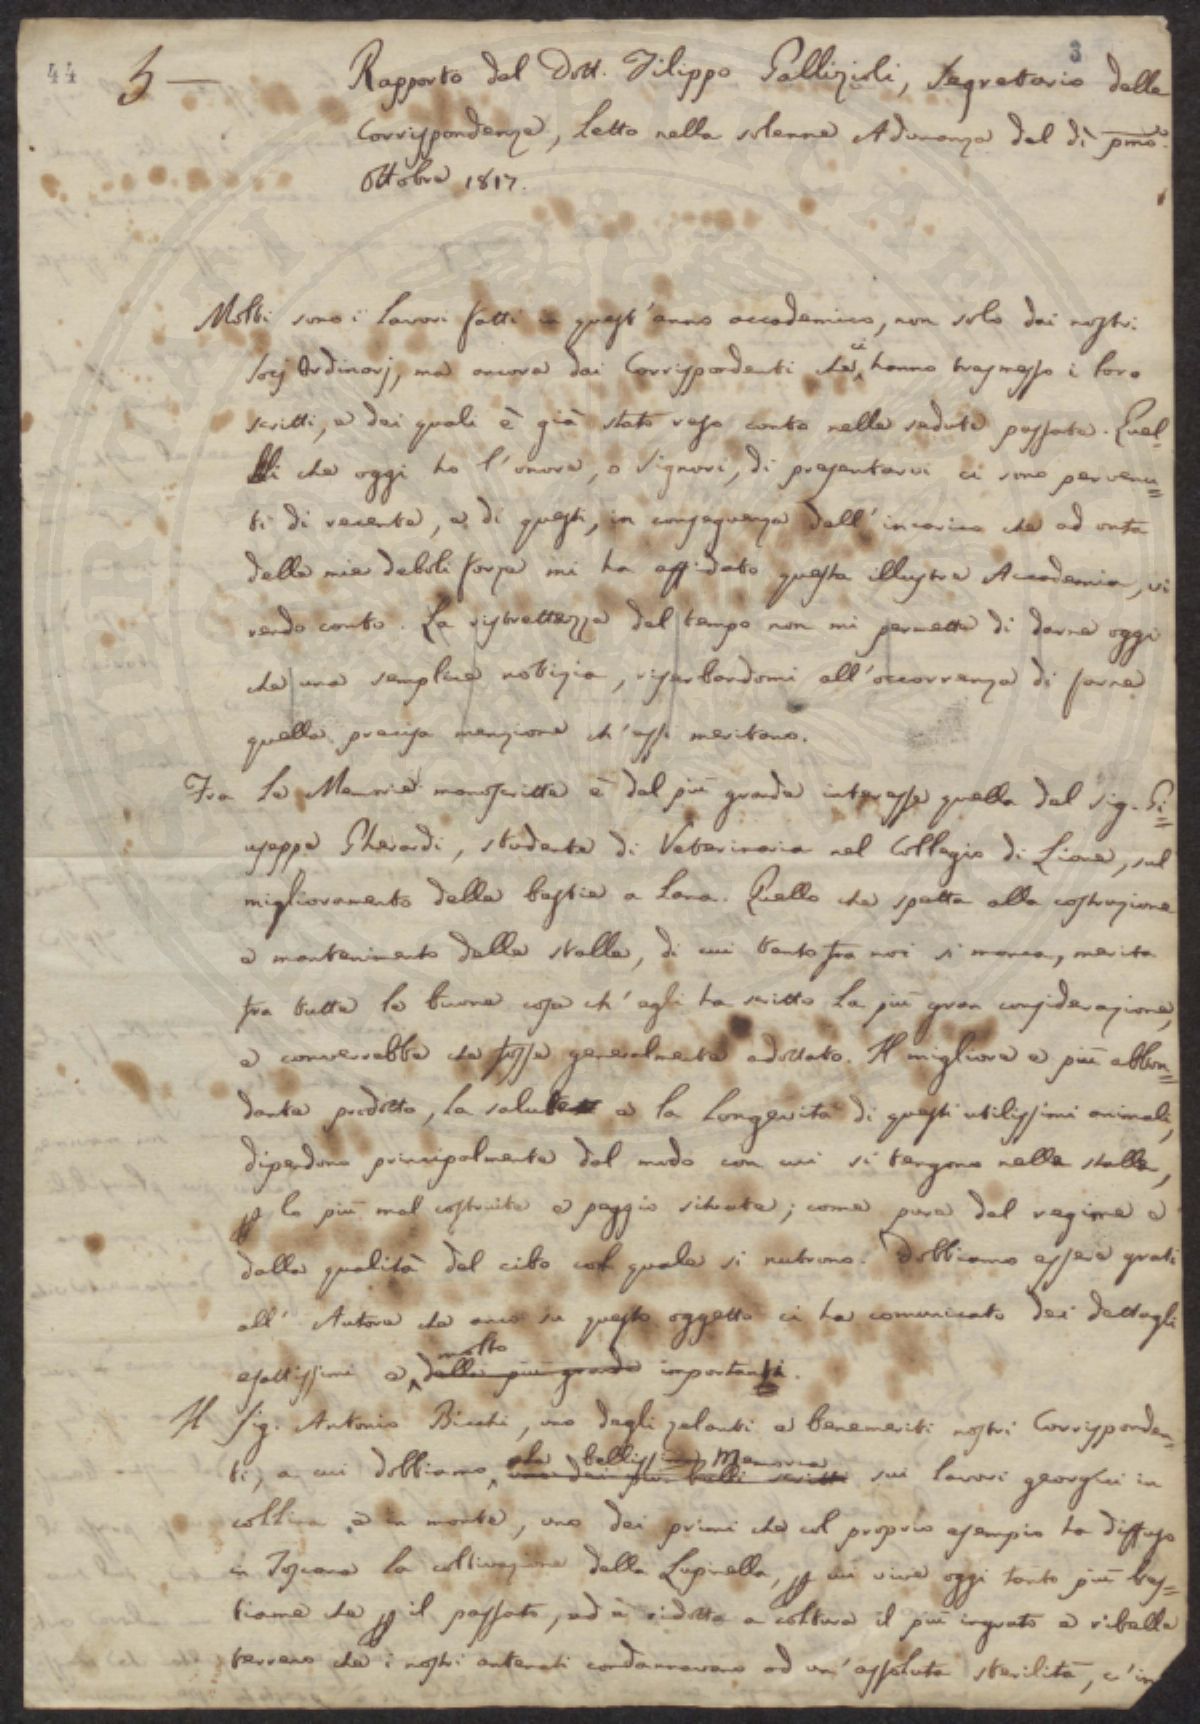 44 5 — 3
Rapporto del Dott. Filippo Gallizioli, Segretario delle
Corrispondenze, Letto nella solenne Adunanza del dì pmo.
Ottobre 1817.
Molti sono i lavori fatti in quest'anno accademico, non solo dai nostri
Socj Ordinarj, ma ancora dai Corrispondenti che ci hanno trasmesso i loro
scritti, e dei quali è già stato reso conto nelle sedute passate. Quel-
li che oggi ho l'onore, o Signori, di presentarvi ci sono pervenu=
ti di recente, e di questi, in conseguenza dell'incarico che ad onta
delle mie deboli forze mi ha affidato questa illustre Accademia, vi
rendo conto. La ristrettezza del tempo non mi permette di darne oggi
che una semplice notizia, riserbandomi all'occorrenza di farne
quella precisa menzione ch'essi meritano.
Fra le Memorie manoscritte è del più grande interesse quella del Sig. Gi=
useppe Gherardi, studente di Veterinaria nel Collegio di Lione, sul
miglioramento delle bestie a lana. Quello che spetta alla costruzione
e mantenimento delle stalle, di cui tanto fra noi si manca, merita
fra tutte le buone cose ch'egli ha scritto la più gran considerazione,
e converrebbe che fosse generalmente adottato. Il migliore e più abbon=
dante prodotto, la salute e la longevità di questi utilissimi animali,
dipendono principalmente dal modo con cui si tengono nelle stalle,
ꝑ lo più mal costruite e peggio situate; come pure dal regime e
dalla qualità del cibo col quale si nutrono. Dobbiamo essere grati
all'Autore che anco su questo oggetto ci ha comunicato dei dettagli
esattissimi e molto della più grande importanti.
Il Sig. Antonio Bicchi, uno degli zelanti e benemeriti nostri Corrisponden=
ti, a cui dobbiamo la bellissima Memoria uno dei più belli scritti sui lavori georgici in
collina e in monte, uno dei primi che col proprio esempio ha diffuso
in Toscana la coltivazione della Lupinella, ꝑ cui vive oggi tanto più bes=
tiame che ꝑ il passato, ed è ridotto a coltura il più ingrato e ribelle
terreno che i nostri antenati condannavano ad un'assoluta sterilità, c'in